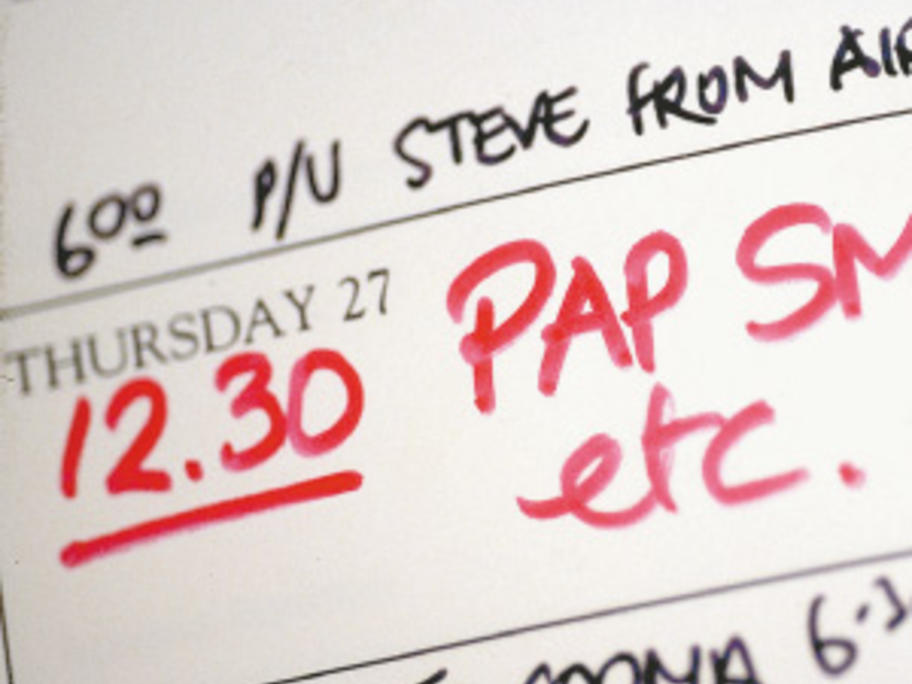 600 P/U STEVE FROM AIR
THURSDAY 27
12.30 PAP SM
etc.